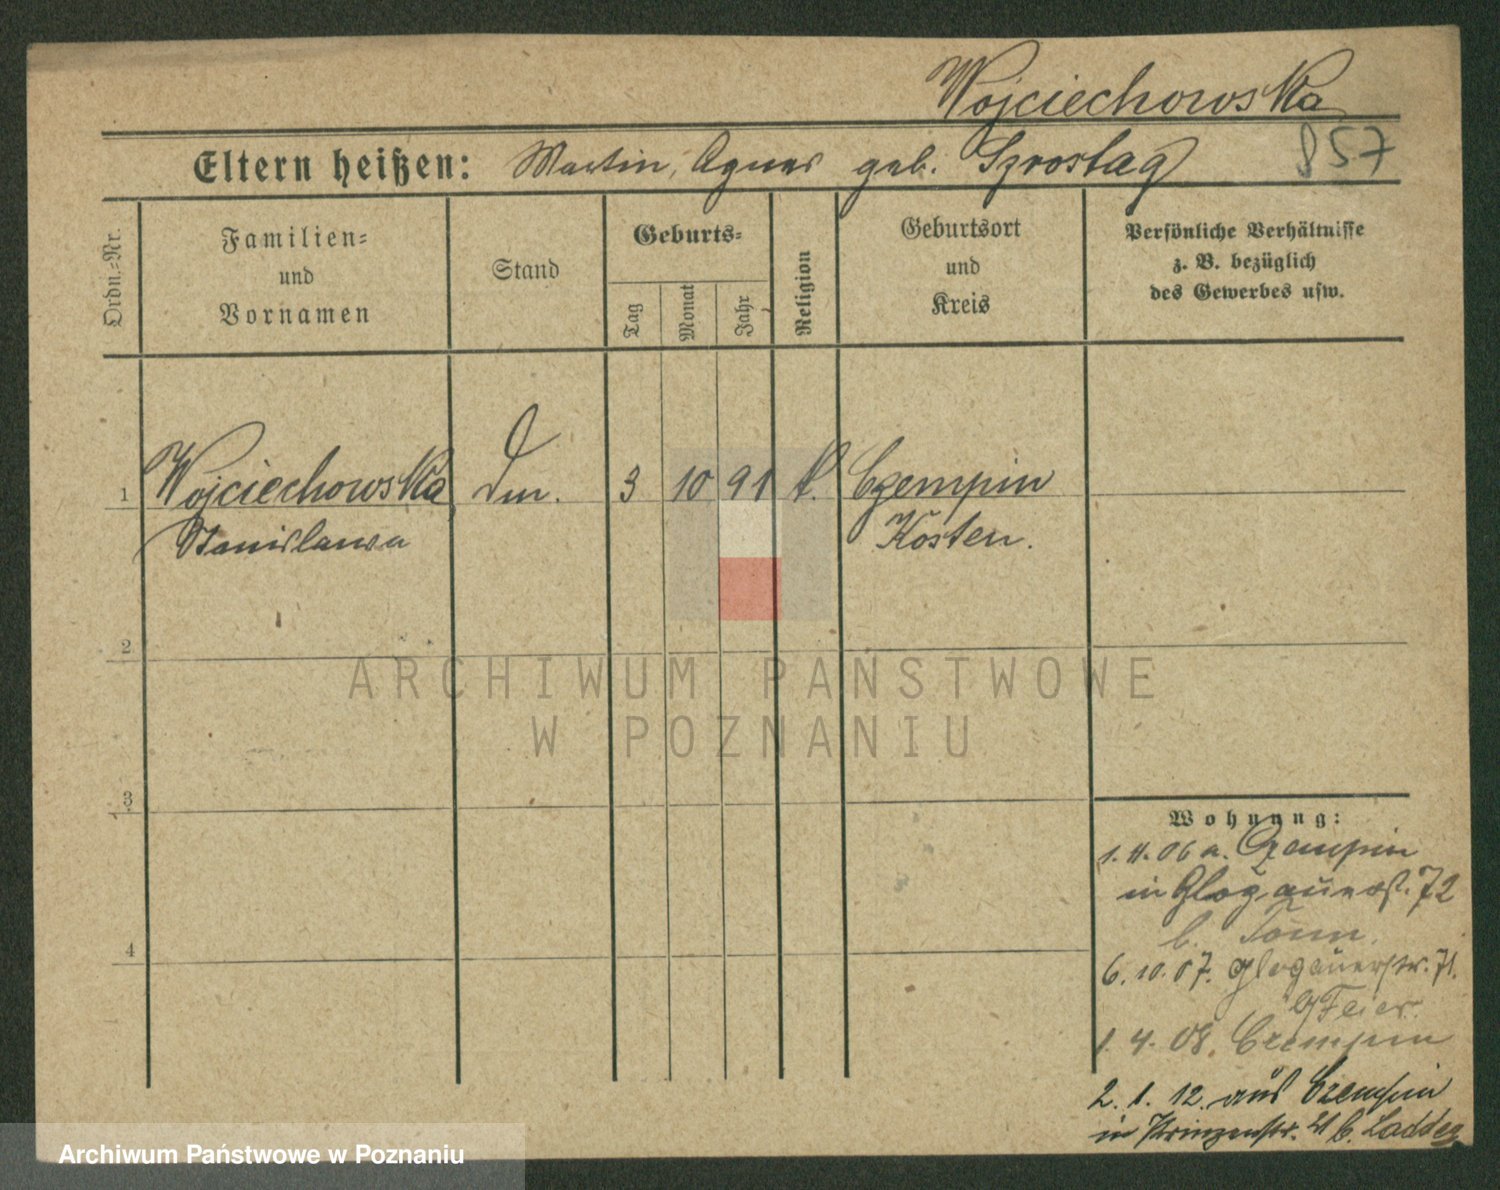 Wojciechowska
Eltern heißen: Martin, Agnes geb. Szrostag
857
Ordn.-Nr.
Familien-
und
Vornamen
Stand
Geburts-
Tag
Monat
Jahr
Religion
Geburtsort
und
Kreis
Persönliche Verhältnisse
z. B. bezüglich
des Gewerbes usw.
1 Wojciechowska 3 10 91 k. Czempin
Stanislawa Kosten.
2
3
4
Wohnung:
1.4.06 a. Czempin
in Glogauerst. 72
b.
6.10.07. Glogauerstr. 71.
b Feier.
1. 4. 08. Czempin
2. 1. 12. aus Czempin
in Prinzenstr. 21 b.
ARCHIWUM PAŃSTWOWE
W POZNANIU
Archiwum Państwowe w Poznaniu